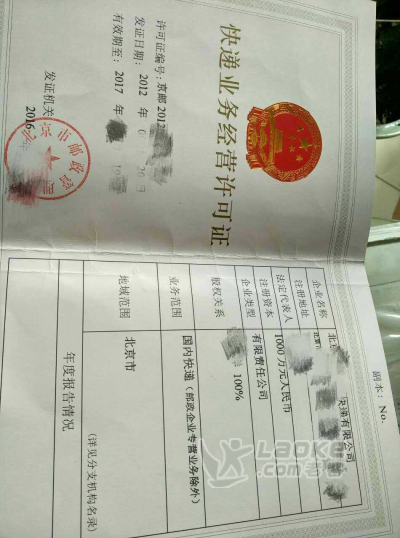 快递业务经营许可证
许可证编号:京邮2012
发证日期:2012 年
有效期至:2017 年
发证机关
2016
市邮政
副本:No.
企业名称 北京 有限公司
注册地址 北京市
法定代表人
注册资本 1000万元人民币
企业类型 有限责任公司
股权关系 100%
业务范围 国内快递(邮政企业专营业务除外)
地域范围 北京市
(详见分支机构名录)
年度报告情况
Laoka.com 老客